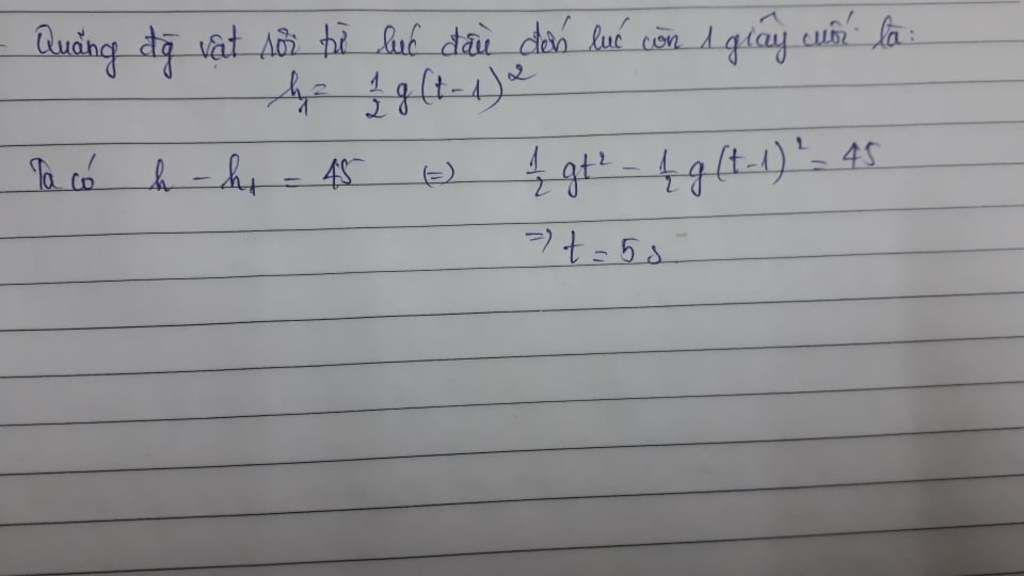 Quảng đg vật rơi từ lúc đầu đến lúc còn 1 giây cuối là:
h₁ = 1/2 g(t-1)²
Ta có h - h₁ = 45 (=) 1/2 gt² - 1/2 g(t-1)² = 45
=> t = 5s